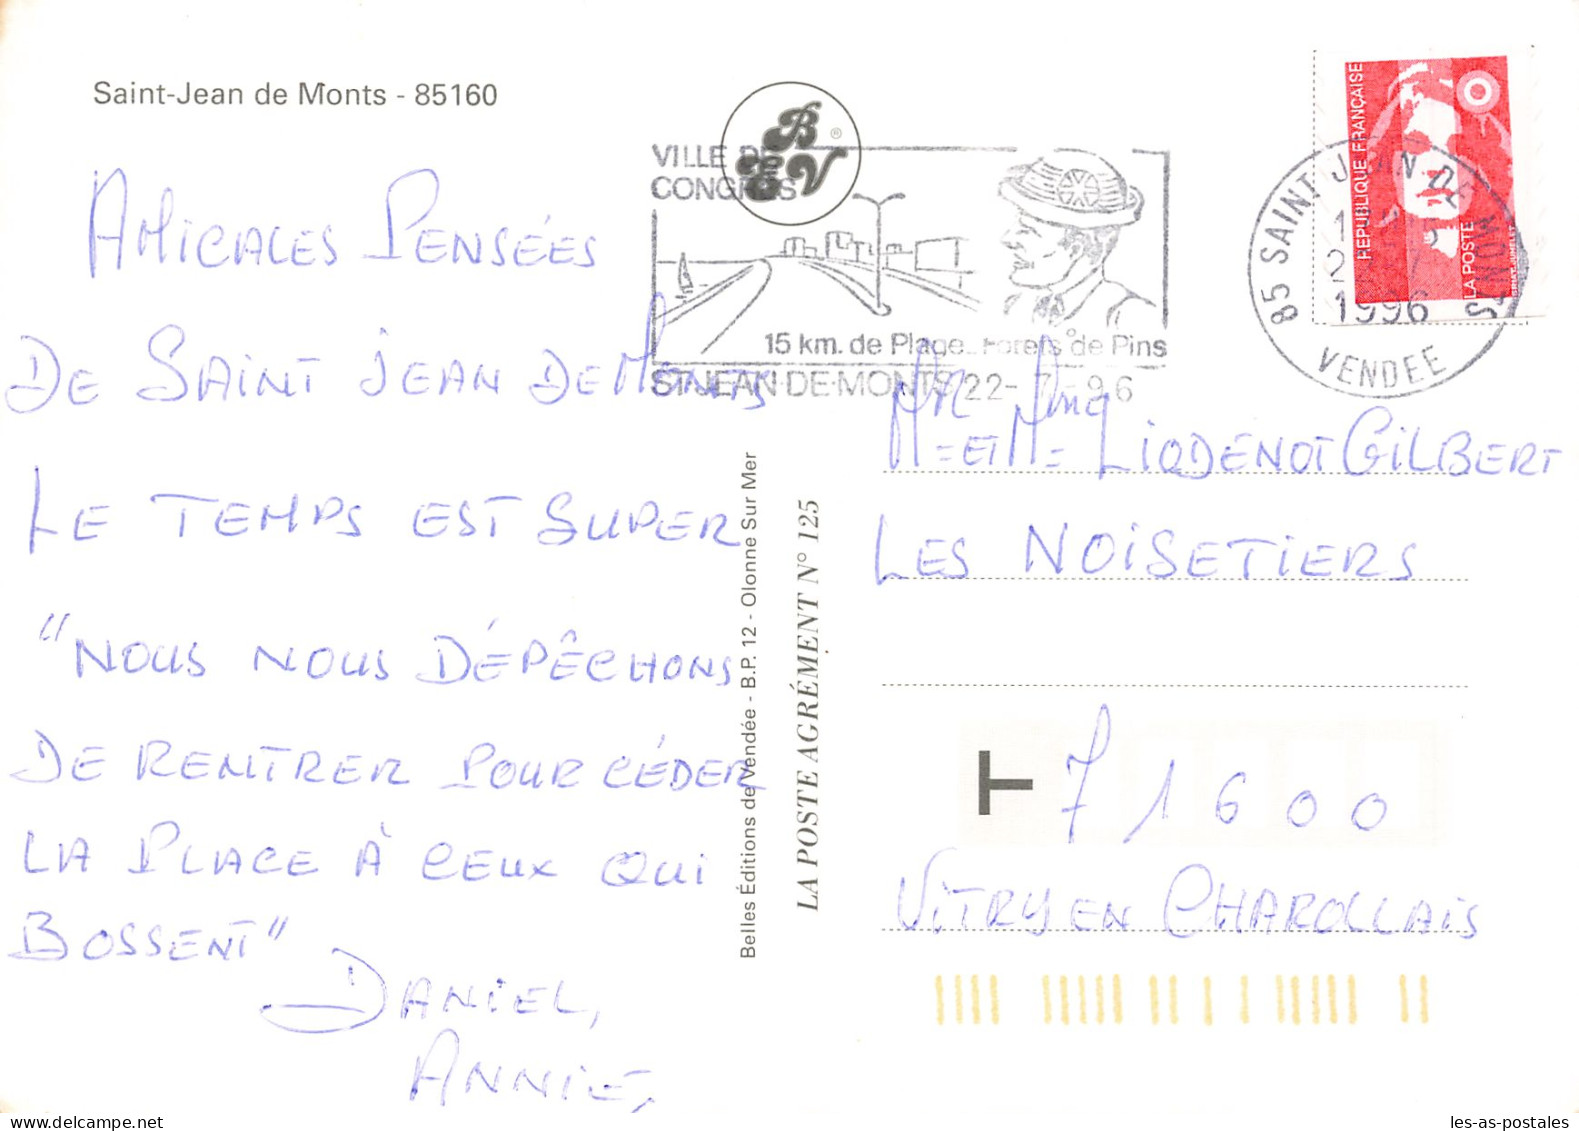 Saint-Jean de Monts - 85160
AMICALES PENSÉES
DE SAINT JEAN DE MONTS
LE TEMPS EST SUPER
"NOUS NOUS DÉPÊCHONS
DE RENTRER POUR CÉDER
LA PLACE À CEUX QUI
BOSSENT"
DANIEL,
ANNIE,
Belles Éditions de Vendée - B.P. 12 - Olonne Sur Mer
LA POSTE AGRÉMENT N° 125
BEV ®
VILLE DE
CONGRES
15 km. de Plage_ Forets de Pins
ST JEAN DE MONTS 22-7-96
REPUBLIQUE FRANÇAISE
LA POSTE
85 SAINT JEAN DE MONTS
1996
VENDEE
MR MME
M= ET M= LIODENOT GILBERT
LES NOISETIERS
T 71600
VITRY EN CHAROLLAIS
les-as-postales